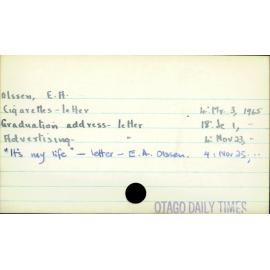 Olssen, E.A.
Cigarettes - letter 4: Mr. 3, 1965
Graduation address - letter 18: De 1, "
Advertising - " 4: Nov 23, "
"It's my life" - letter - E.A. Olssen. 4: Nov 25, "
OTAGO DAILY TIMES